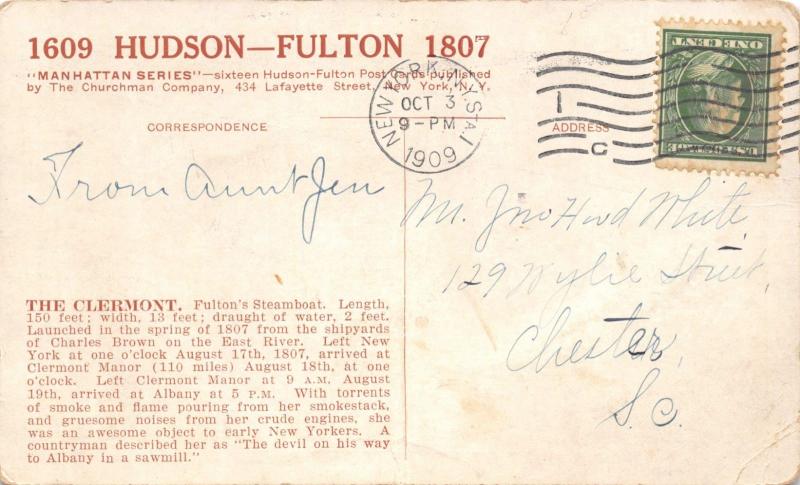 1609 HUDSON—FULTON 1807
"MANHATTAN SERIES"—sixteen Hudson-Fulton Post Cards published
by The Churchman Company, 434 Lafayette Street, New York, N. Y.
NEW YORK, N.Y. STA. I
OCT 3
9-PM
1909
1
C
ONE CENT
U.S. POSTAGE
CORRESPONDENCE
ADDRESS
From Aunt Jen
Mr. Jno Hood White,
129 Wylie Street,
Chester,
S.C.
THE CLERMONT. Fulton's Steamboat. Length,
150 feet; width, 13 feet; draught of water, 2 feet.
Launched in the spring of 1807 from the shipyards
of Charles Brown on the East River. Left New
York at one o'clock August 17th, 1807, arrived at
Clermont Manor (110 miles) August 18th, at one
o'clock. Left Clermont Manor at 9 A.M. August
19th, arrived at Albany at 5 P.M. With torrents
of smoke and flame pouring from her smokestack,
and gruesome noises from her crude engines, she
was an awesome object to early New Yorkers. A
countryman described her as "The devil on his way
to Albany in a sawmill."